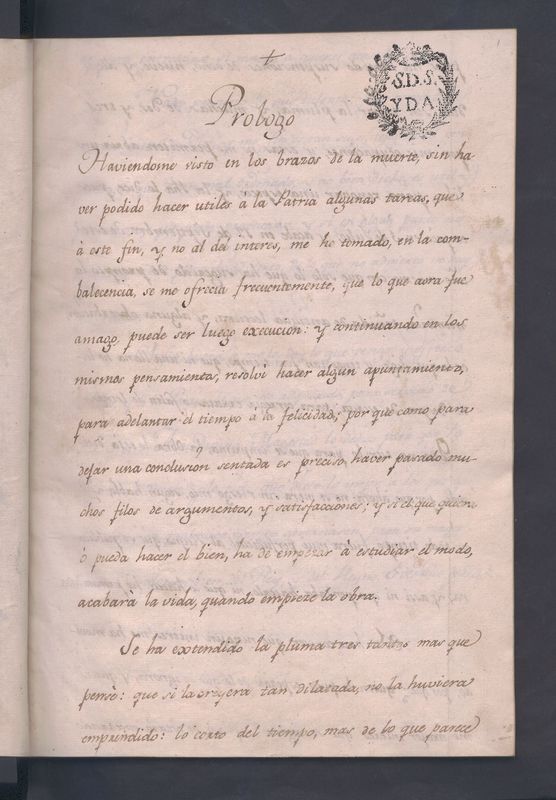 +
S.D.S.
Y D A
Prologo
Haviendome visto en los brazos de la muerte, sin ha-
ver podido hacer utiles à la Patria algunas tareas, que
à este fin, y no al del interes, me he tomado, en la com-
balecencia, se me ofrecia frecuentemente, que lo que aora fue
amago, puede ser luego execucion: y continuando en los
mismos pensamientos, resolvì hacer algun apuntamiento,
para adelantar el tiempo à la felicidad; por que como para
dejar una conclusion sentada es preciso haver pasado mu-
chos filos de argumentos, y satisfacciones: y si el que quiera
ò pueda hacer el bien, ha de empezar à estudiar el modo,
acabarà la vida, quando empieze la obra.
Se ha extendido la pluma tres tantos mas que
pensè: que si la creyera tan dilatada, no la huviera
emprindido: lo corto del tiempo, mas de lo que parece